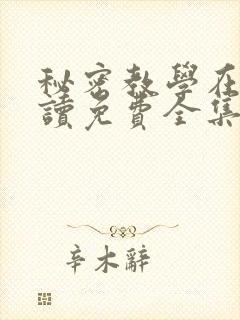 秘密教學在
讀免費全集
辛木辭